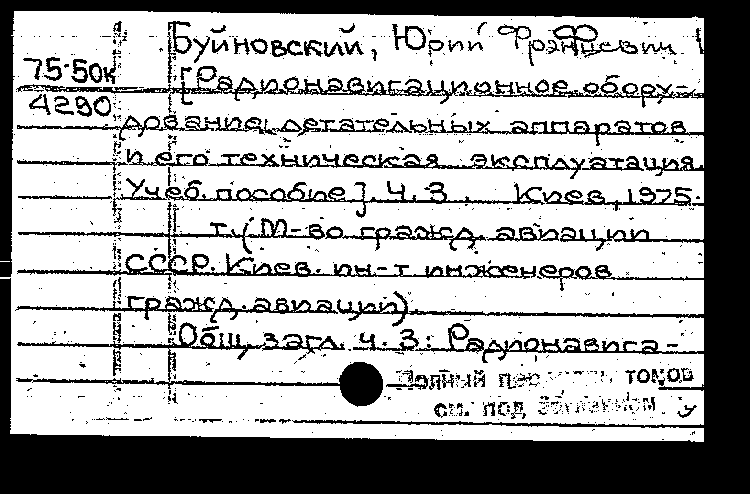 Буйновский, Юрий Францевич
75-50к
[Радионавигационное обору-
4290
дование летательных аппаратов
и его техническая эксплуатация.
Учеб. пособие]. Ч. 3. Киев, 1975.
т. (М-во гражд. авиации
СССР. Киев. ин-т инженеров
гражд. авиации).
Общ. загл. ч. 3: Радионавига-
Полный перечень томов
см. под заглавием